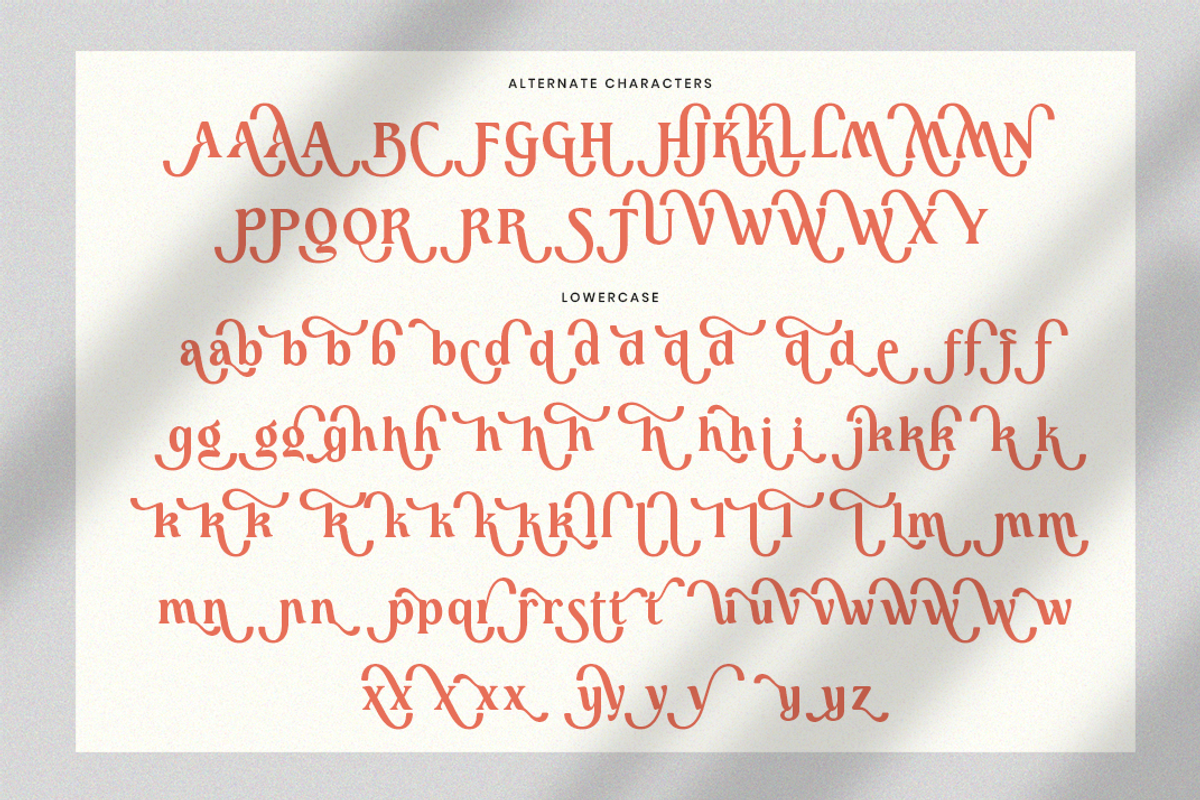 ALTERNATE CHARACTERS
AAAA BC FGGH HJKKLLMMMN
PPQQR RR S TUVWWWXY
LOWERCASE
aabbbb bcddddddd dde ffff
gg ggghhhh hhh hhhii jkkk kk
kkk kkkkkklllll lll llm mm
mn nn ppqrrrsttt uuvvwwwww
xxxxx yyyy yyz